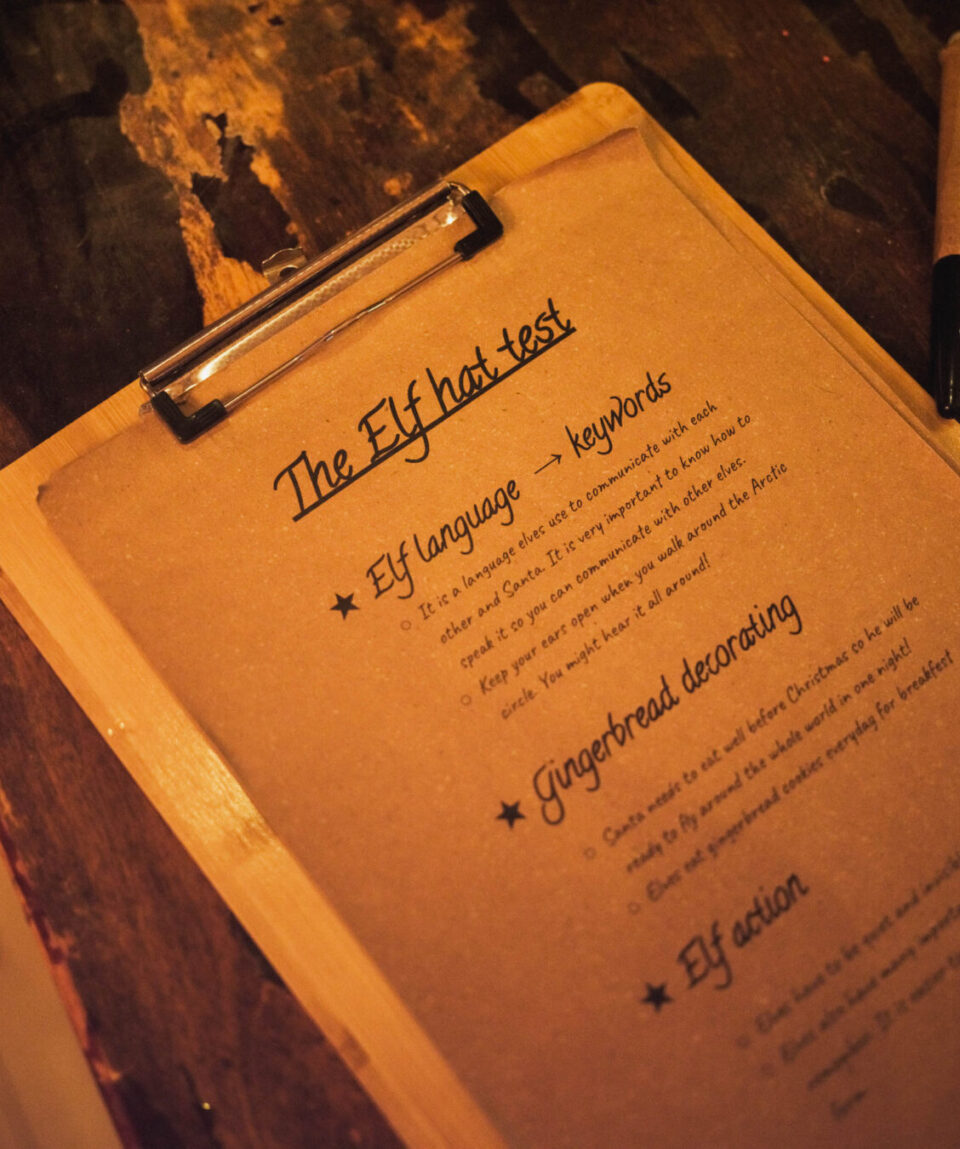 The Elf hat test
★ Elf language → keywords
○ It is a language elves use to communicate with each
other and Santa. It is very important to know how to
speak it so you can communicate with other elves.
○ Keep your ears open when you walk around the Arctic
circle. You might hear it all around!
★ Gingerbread decorating
○ Santa needs to eat well before Christmas so he will be
ready to fly around the whole world in one night!
○ Elves eat gingerbread cookies everyday for breakfast
★ Elf action
○ Elves have to be quiet and
○ Elves also have many
remember. It is never